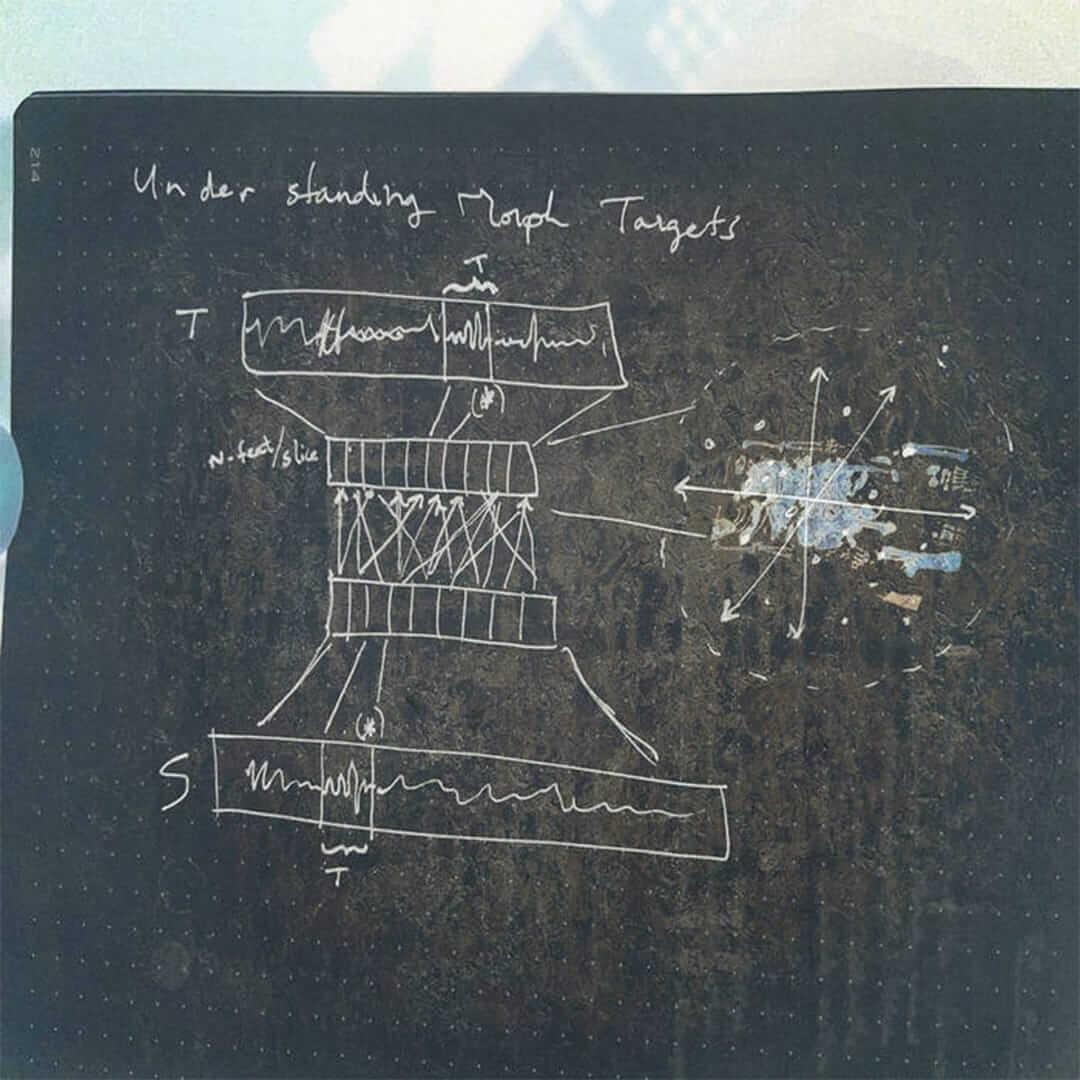 214
Understanding Morph Targets
T
T
(*)
N-feat/slice
(*)
S
T